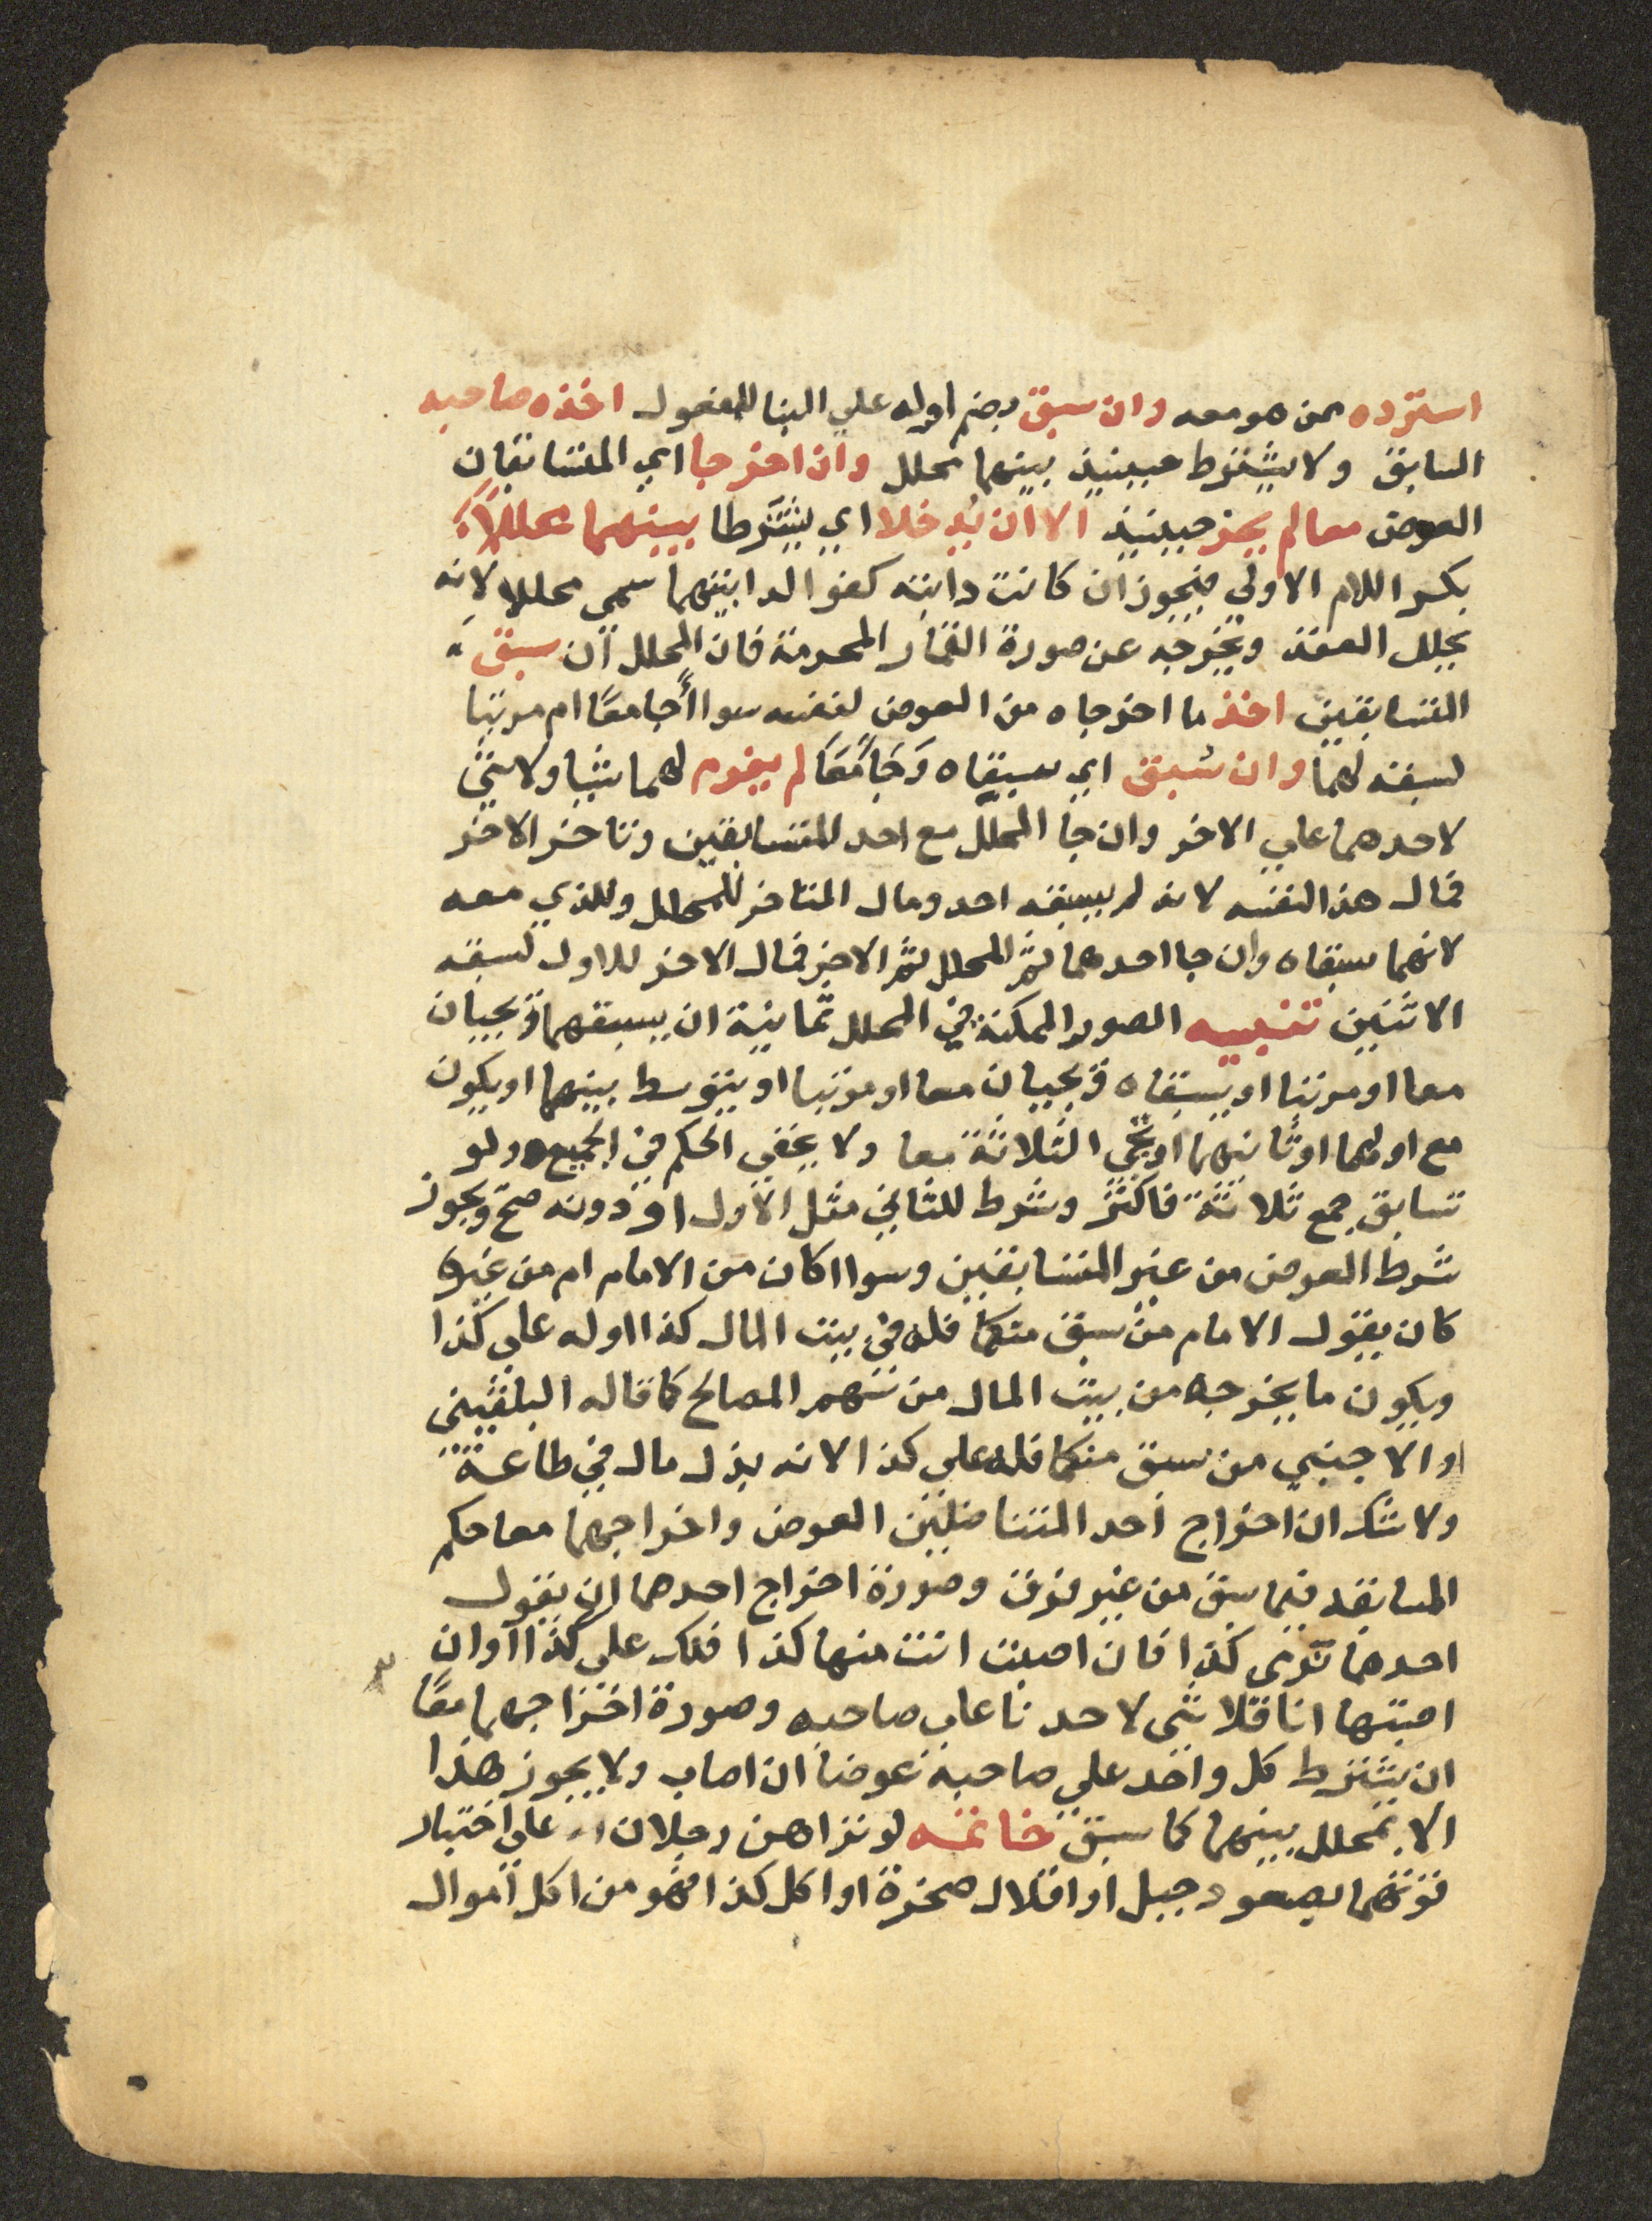 استرده ممن هو معه وان سبق بضم اوله علي البنا للمفعول اخذه صاحبه
السابق ولا يشترط حينيذ بينهما محلل وان اخرجا اي المتسابقان
العوض معا لم يجز حينيذ الا ان يُدخلا اي يشترطا بينهما محللاً
بكسر اللام الاولي فيجوز ان كانت دابته كفو الدابتيهما سمي محللا لانه
يحلل العقد ويخرجه عن صورة القمار المحرمة فان المحلل ان سبق
المتسابقين اخذ ما اخرجاه من العوض لنفسه سوا أجا معًا ام مرتبا
لسبقه لهما وان سُبق اي سبقاه وَجَا مَعًا لم يغرم لهما شيا ولا شي
لاحدهما علي الاخر وان جا المحلل مع احد المتسابقين وتاخر الاخر
فمال هذا لنفسه لانه لم يسبقه احد ومال المتاخر للمحلل وللذي معه
لانهما سبقاه وان جا احدهما ثم المحلل ثم الاخر فمال الاخر للاول لسبقه
الاثنين تنبيه الصور الممكنة في المحلل ثمانية ان يسبقهما ويجيان
معا او مرتبا او يسبقاه ويجيان معا او مرتبا او يتوسط بينهما او يكون
مع اولهما او ثانيهما او يجي الثلاثة معا ولا يخفي الحكم في الجميع ولو
تسابق جمع ثلاثة فاكثر وشرط للثاني مثل الاول او دونه صح ويجوز
شرط العوض من غير المتسابقين وسوا اكان من الامام ام من غيره
كان يقول الامام من سبق منكما فله في بيت المال كذا اوله علي كذا
ويكون ما يخرجه من بيت المال من سهم المصالح كما قاله البلقيني
او الاجنبي من سبق منكما فله علي كذا لانه بذل مال في طاعة
ولا شك ان اخراج احد المتناضلين العوض واخراجهما معا حكم
المسابقه فيما سبق من غير فرق وصورة اخراج احدهما ان يقول
احدهما نرمي كذا فان اصبت انت منها كذا فلك علي كذا وان
اصبتها انا فلا شي لاحدنا علي صاحبه وصورة اخراجهما معًا
ان يشترط كل واحد علي صاحبه عوضا ان اصاب ولا يجوز هذا
الا بمحلل بينهما كما سبق خاتمه لو تراهن رجلان علي اختبار
قوتهما بصعود جبل او اقلال صخرة او اكل كذا فهو من اكل اموال